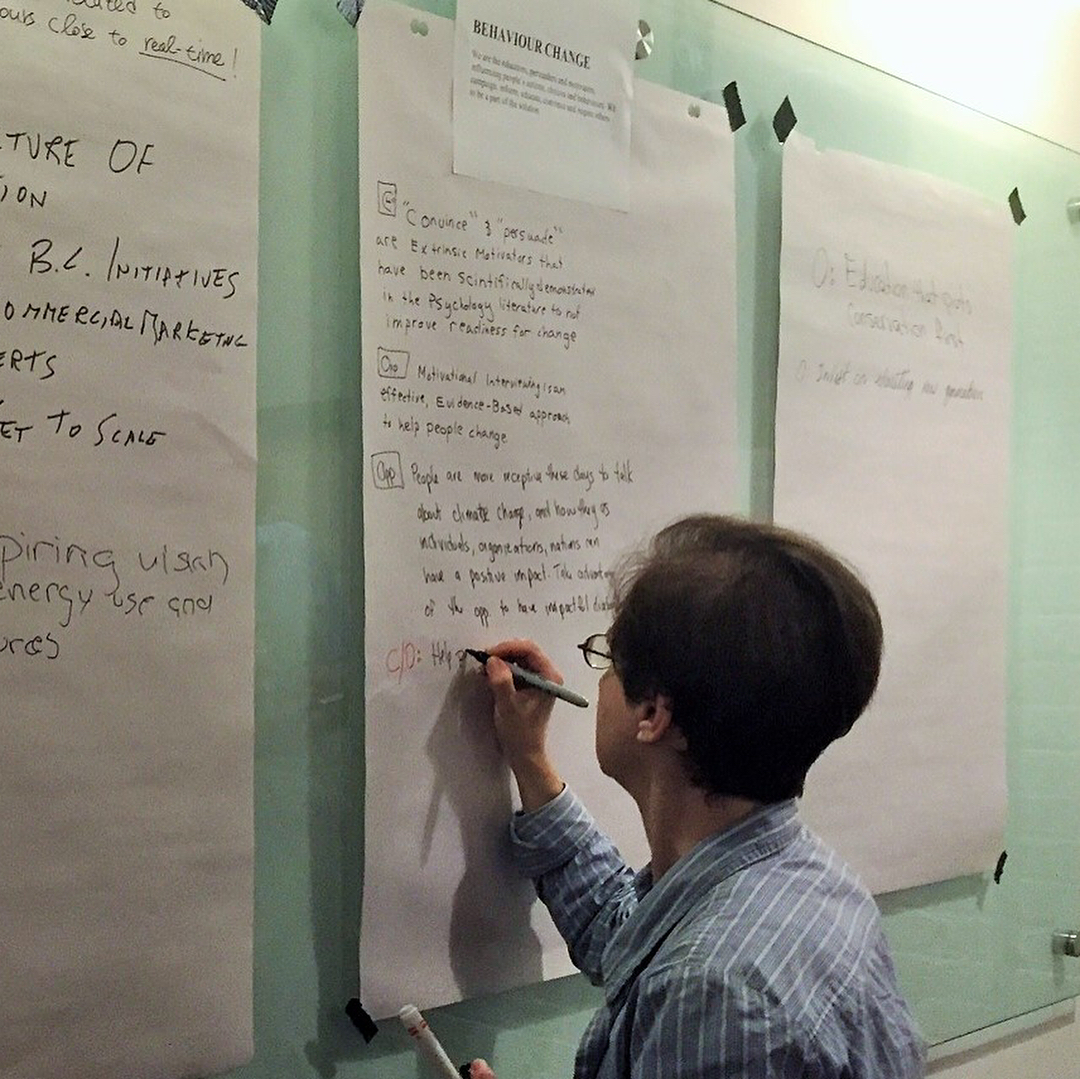 to
ours close to real-time!
TURE OF
ION
B.C. INITIATIVES
OMMERCIAL MARKETNG
ERTS
ET TO SCALE
piring
energy use and
urces
BEHAVIOUR CHANGE
We are the educators, persuaders and motivators,
influencing people's actions, choices and behaviours. We
campaign, inform, educate, convince and inspire others
to be a part of the solution.
C
"Convince" & "persuade"
are Extrinsic Motivators that
have been scintifically demonstrated
in the Psychology literature to not
improve readiness for change
Motivational Interviewing is an
effective, Evidence-Based approach
to help people change
Opp People are more receptive these days to talk
about climate change, and how they as
individuals, organizations, nations can
have a positive impact. Take
of the opp. to have impactful
C/O: Help
O: Education that
Conservation first
O on educating new generation